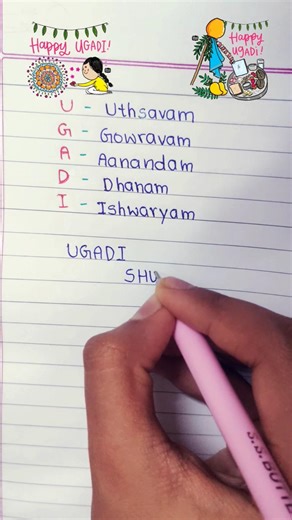 Happy UGADI!
Happy Ugadi!
U - Uthsavam
G - Gowravam
A - Aanandam
D - Dhanam
I - Ishwaryam
UGADI
SHU
S.S.BUTTE